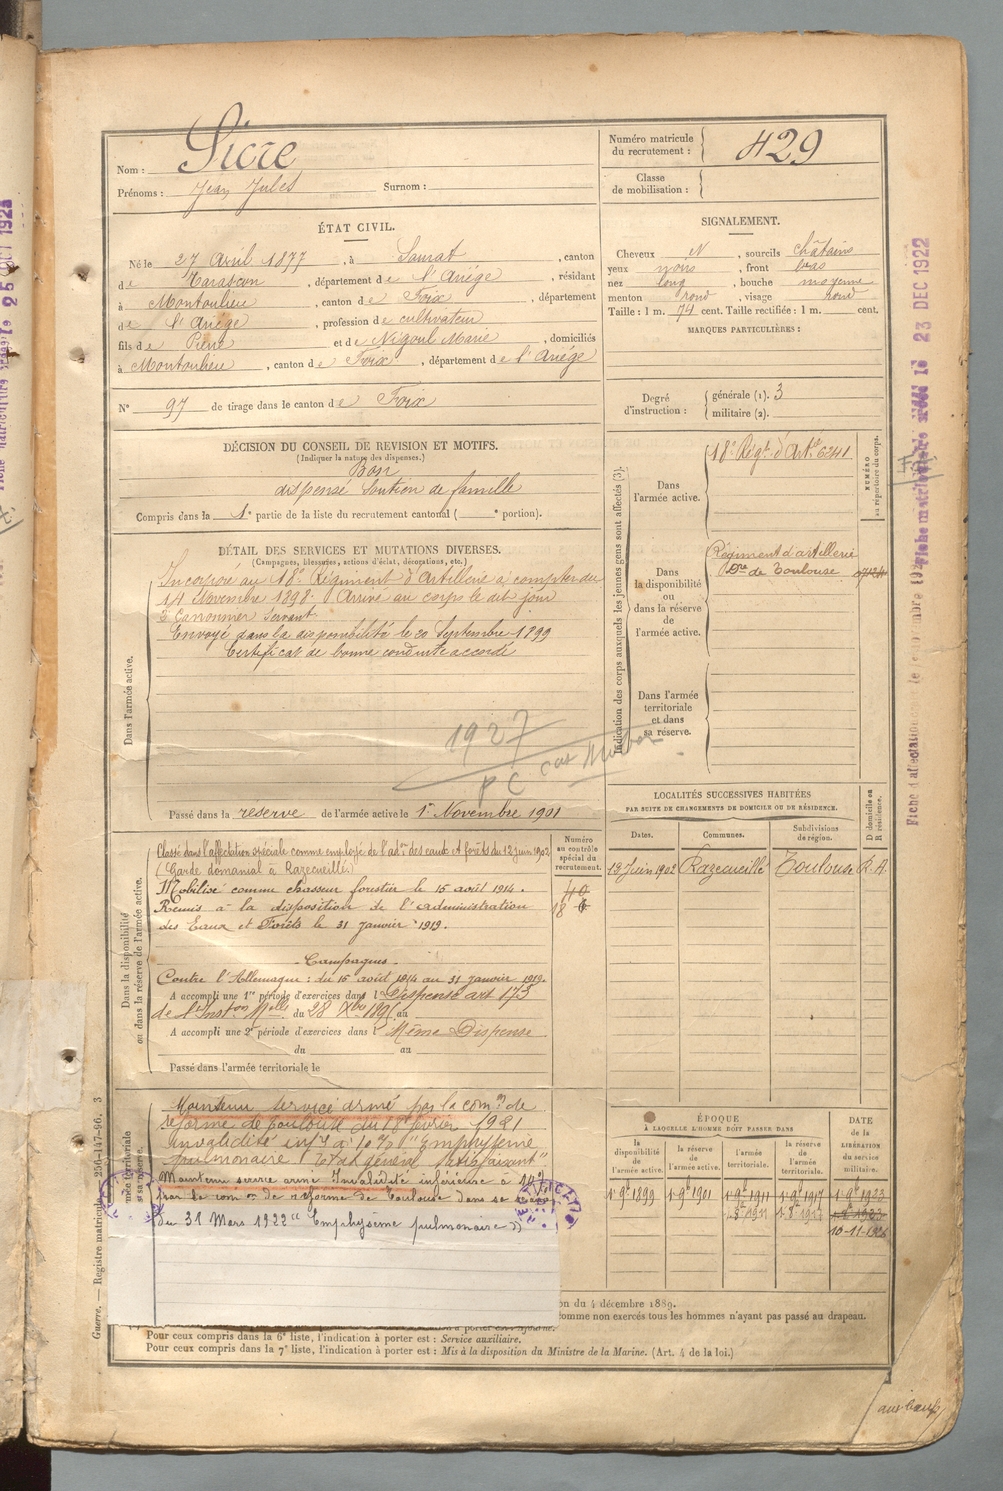 Nom : Sicre
Prénoms : Jean Jules Surnom :
Numéro matricule
du recrutement : 429
Classe
de mobilisation :
ÉTAT CIVIL.
Né le 27 Avril 1877, à Saurat, canton
de Tarascon, département de l'Ariège, résidant
à Montoulieu, canton de Foix, département
de l'Ariège, profession de cultivateur
fils de Pierre et de Nigoul Marie, domiciliés
à Montoulieu, canton de Foix, département de l'Ariège
N° 97 de tirage dans le canton de Foix
SIGNALEMENT.
Cheveux N, sourcils châtains
yeux noirs, front bas
nez long, bouche moyenne
menton rond, visage rond
Taille : 1 m. 74 cent. Taille rectifiée : 1 m. cent.
MARQUES PARTICULIÈRES :
Degré
d'instruction :
générale (1). 3
militaire (2).
DÉCISION DU CONSEIL DE REVISION ET MOTIFS.
(Indiquer la nature des dispenses.)
Bon
dispensé Soutien de famille
Compris dans la 1e partie de la liste du recrutement cantonal ( e portion).
DÉTAIL DES SERVICES ET MUTATIONS DIVERSES.
(Campagnes, blessures, actions d'éclat, décorations, etc.)
Dans l'armée active.
Incorporé au 18e Régiment d'Artillerie à compter du
14 Novembre 1898. Arrivé au corps le dit jour
2e Canonnier Servant
Envoyé dans la disponibilité le 20 Septembre 1899
Certificat de bonne conduite accordé
1927
PC
Passé dans la reserve de l'armée active le 1er Novembre 1901
Indication des corps auxquels les jeunes gens sont affectés (3).
NUMÉRO
au répertoire du corps.
Dans
l'armée active.
18e Régt d'Artie 6241
Dans
la disponibilité
ou
dans la réserve
de
l'armée active.
Régiment d'artillerie
de Toulouse
Dans l'armée
territoriale
et dans
sa réserve.
LOCALITÉS SUCCESSIVES HABITÉES
PAR SUITE DE CHANGEMENTS DE DOMICILE OU DE RÉSIDENCE.
Dates. Communes. Subdivisions
de région. D domicile ou
R résidence.
19 Juin 1902 Razecueillé Toulouse R. A.
Dans la disponibilité
ou dans la réserve de l'armée active.
Numéro
au contrôle
spécial du
recrutement.
40
18
Classé dans l'affectation spéciale comme employé de l'adon des eaux et forêts du 12 juin 1902
(Garde domanial à Razecueillé.)
Mobilisé comme chasseur forestier le 15 août 1914.
Remis à la disposition de l'administration
des Eaux et Forêts le 31 janvier 1919.
- Campagnes -
Contre l'Allemagne : du 15 août 1914 au 31 janvier 1919.
A accompli une 1re période d'exercices dans l Dispensé art 173
de l'Inston Melle du 28 Xbre 1895 au
A accompli une 2e période d'exercices dans l Même Dispense
du au
Passé dans l'armée territoriale le
Maintenu service armé par la comon de
réforme de Toulouse du 18 février 1921
Invalidité infre à 10 % "Emphysème
pulmonaire" "état général satisfaisant"
Maintenu service armé Invalidité inférieure à 10 %
par la comon de réforme de Toulouse dans sa séance
du 31 Mars 1922 "Emphysème pulmonaire"
ÉPOQUE
À LAQUELLE L'HOMME DOIT PASSER DANS
la
disponibilité
de
l'armée active.
la réserve
de
l'armée active.
l'armée
territoriale.
la réserve
de l'armée
territoriale.
DATE
de la
LIBÉRATION
du service
militaire.
1er 9bre 1899 1er 9bre 1901 1er 9bre 1911 1er 9bre 1917 1er 9bre 1923
10-11-1926
on du 4 décembre 1889.
omme non exercés tous les hommes n'ayant pas passé au drapeau.
Pour ceux compris dans la 6e liste, l'indication à porter est : Service auxiliaire.
Pour ceux compris dans la 7e liste, l'indication à porter est : Mis à la disposition du Ministre de la Marine. (Art. 4 de la loi.)
Guerre. — Registre matricule. 256-147-96. 3
23 DEC 1922